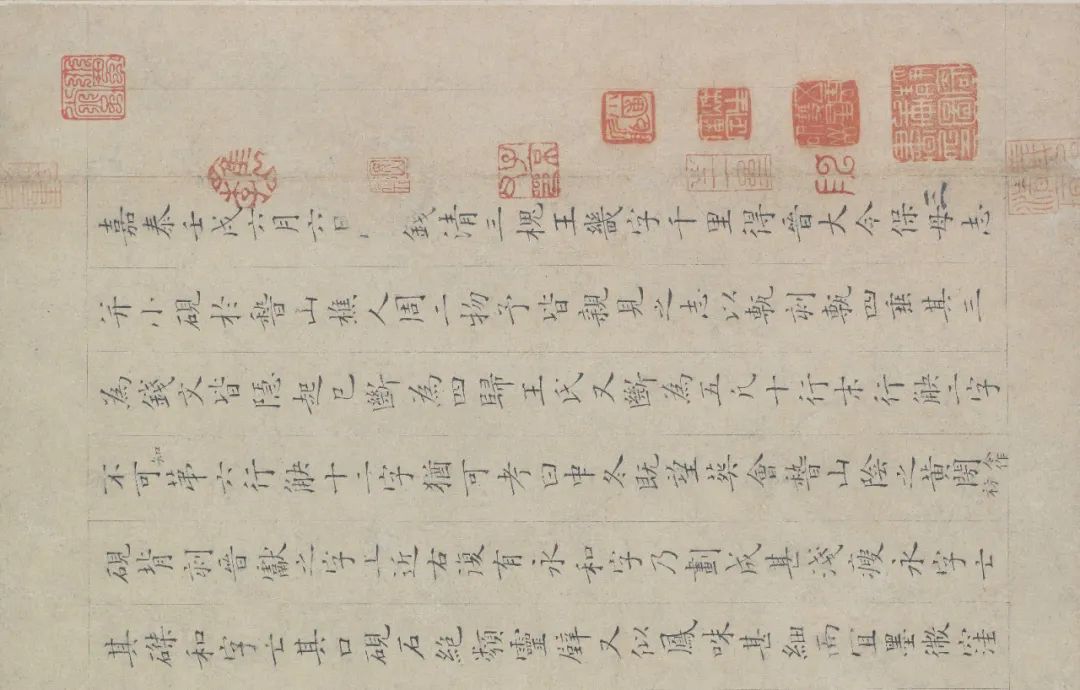 嘉泰壬戌六月六日錢清三槐王畿字千里得晉大令保母志
并小硯於稽山樵人周二物予皆親見之志以甎刻甎四垂其三
為錢文皆隱起已斷為四歸王氏又斷為五凡十行末行缺二字
不可知第六行缺十二字猶可考曰中冬既望葬會稽山陰之黃閍今作祊
硯背刻晉獻之字上近右復有永和字乃劃成甚淺瘦永字亡
其磔和字亡其口硯石絕類靈璧又似鳳咮甚細而宜墨微窪